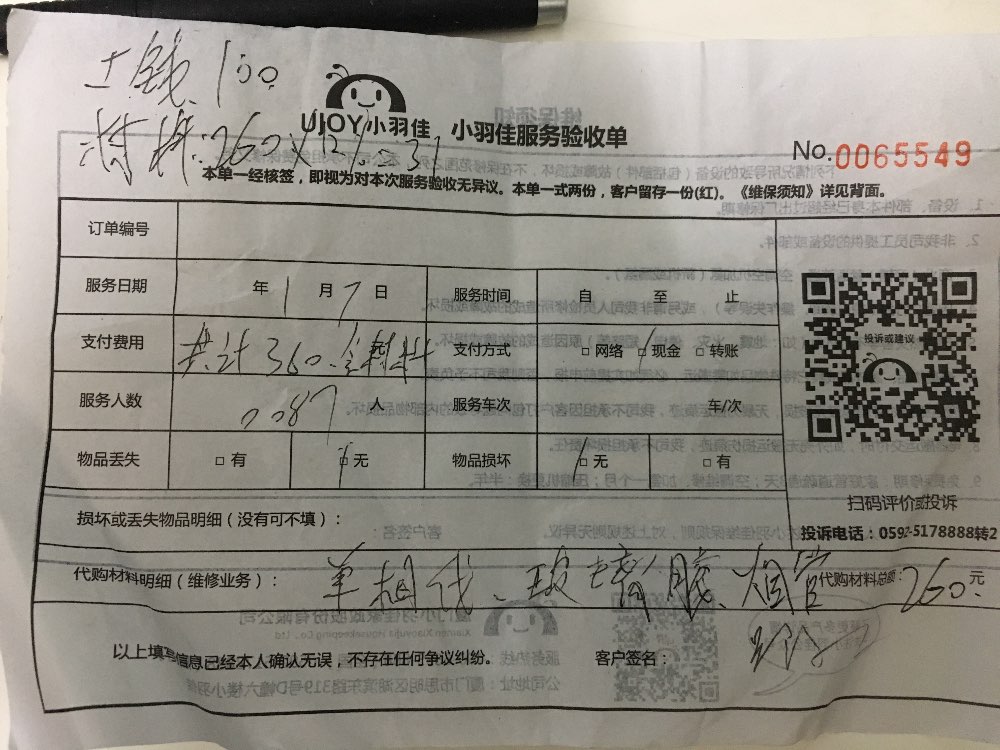 工钱100
材料:260×12%=31
UJOY小羽佳 小羽佳服务验收单
No.0065549
本单一经核签，即视为对本次服务验收无异议。本单一式两份，客户留存一份(红)。《维保须知》详见背面。
订单编号
服务日期 年1月7日 服务时间 自 至 止
支付费用 共计360. 支付方式 □网络 □现金 □转账
投诉或建议
服务人数 0087 人 服务车次 车/次
物品丢失 □有 □无 物品损坏 □无 □有
扫码评价或投诉
损坏或丢失物品明细（没有可不填）：
投诉电话：0592-5178888转2
代购材料明细（维修业务）： 单相线、玻璃胶、烟管 代购材料总额：260元
以上填写信息已经本人确认无误，不存在任何争议纠纷。 客户签名：